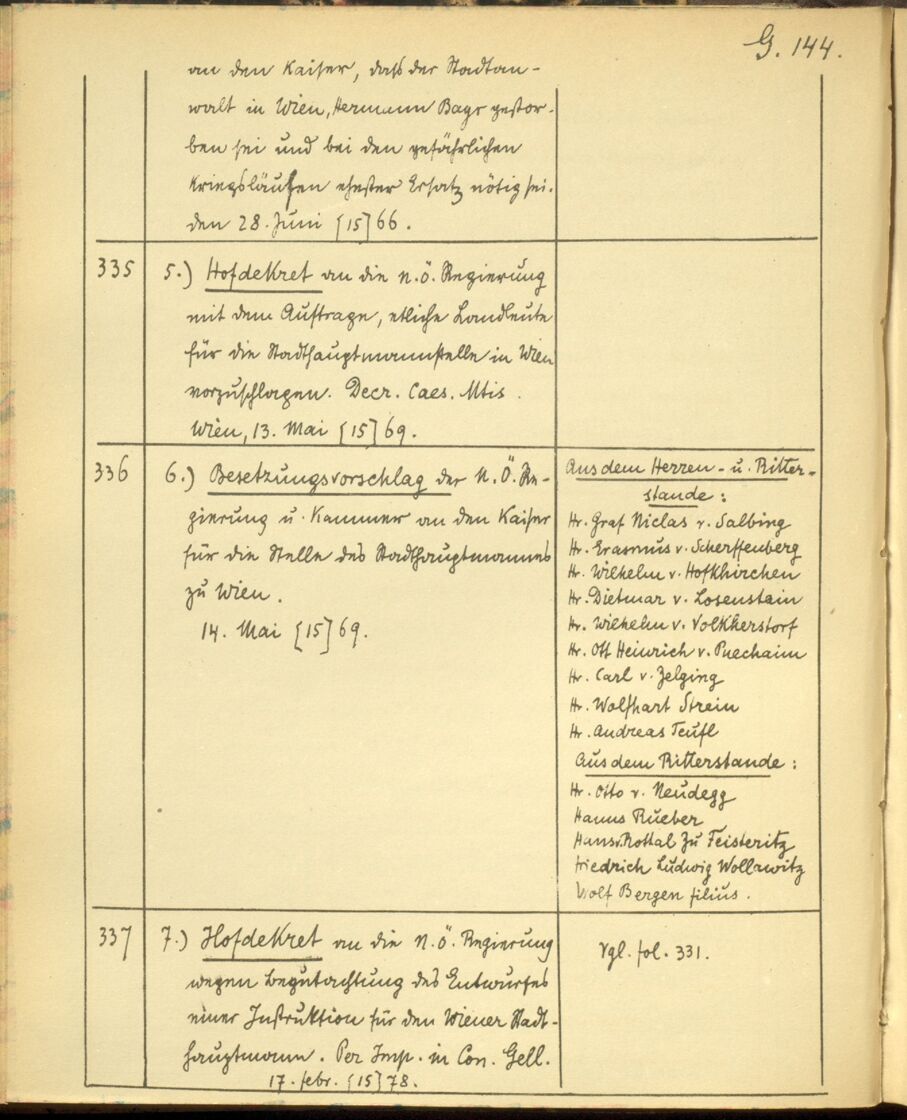 G. 144.
an den Kaiser, dass der Stadtan-
walt in Wien, Hermann Bayr gestor-
ben sei und bei den gefährlichen
Kriegsläufen ehester Ersatz nötig sei.
den 28. Juni [15]66.
335
5.) Hofdekret an die n.ö. Regierung
mit dem Auftrage, etliche Landleute
für die Stadthauptmannstelle in Wien
vorzuschlagen. Decr. Caes. Mtis.
Wien, 13. Mai [15]69.
336
6.) Besetzungsvorschlag der N.Ö. Re-
gierung u. Kammer an den Kaiser
für die Stelle des Stadthauptmannes
zu Wien.
14. Mai [15]69.
Aus dem Herren- u. Ritter-
stande:
Hr. Graf Niclas v. Salbing
Hr. Erasmus v. Scherffenberg
Hr. Wilhelm v. Hofkhirchen
Hr. Dietmar v. Losenstain
Hr. Wilhelm v. Volkherstorf
Hr. Ott Heinrich v. Puechaim
Hr. Carl v. Zelging
Hr. Wolfhart Strein
Hr. Andreas Teufl
Aus dem Ritterstande:
Hr. Otto v. Neudegg
Hanns Rueber
Hans v. Rottal zu Feisteritz
Friedrich Ludwig Wollawitz
Wolf Bergen filius.
337
7.) Hofdekret an die n.ö. Regierung
wegen Begutachtung des Entwurfes
einer Instruktion für den Wiener Stadt-
hauptmann. Per Imp. in Con. Gell.
17. febr. [15]78.
Vgl. fol. 331.